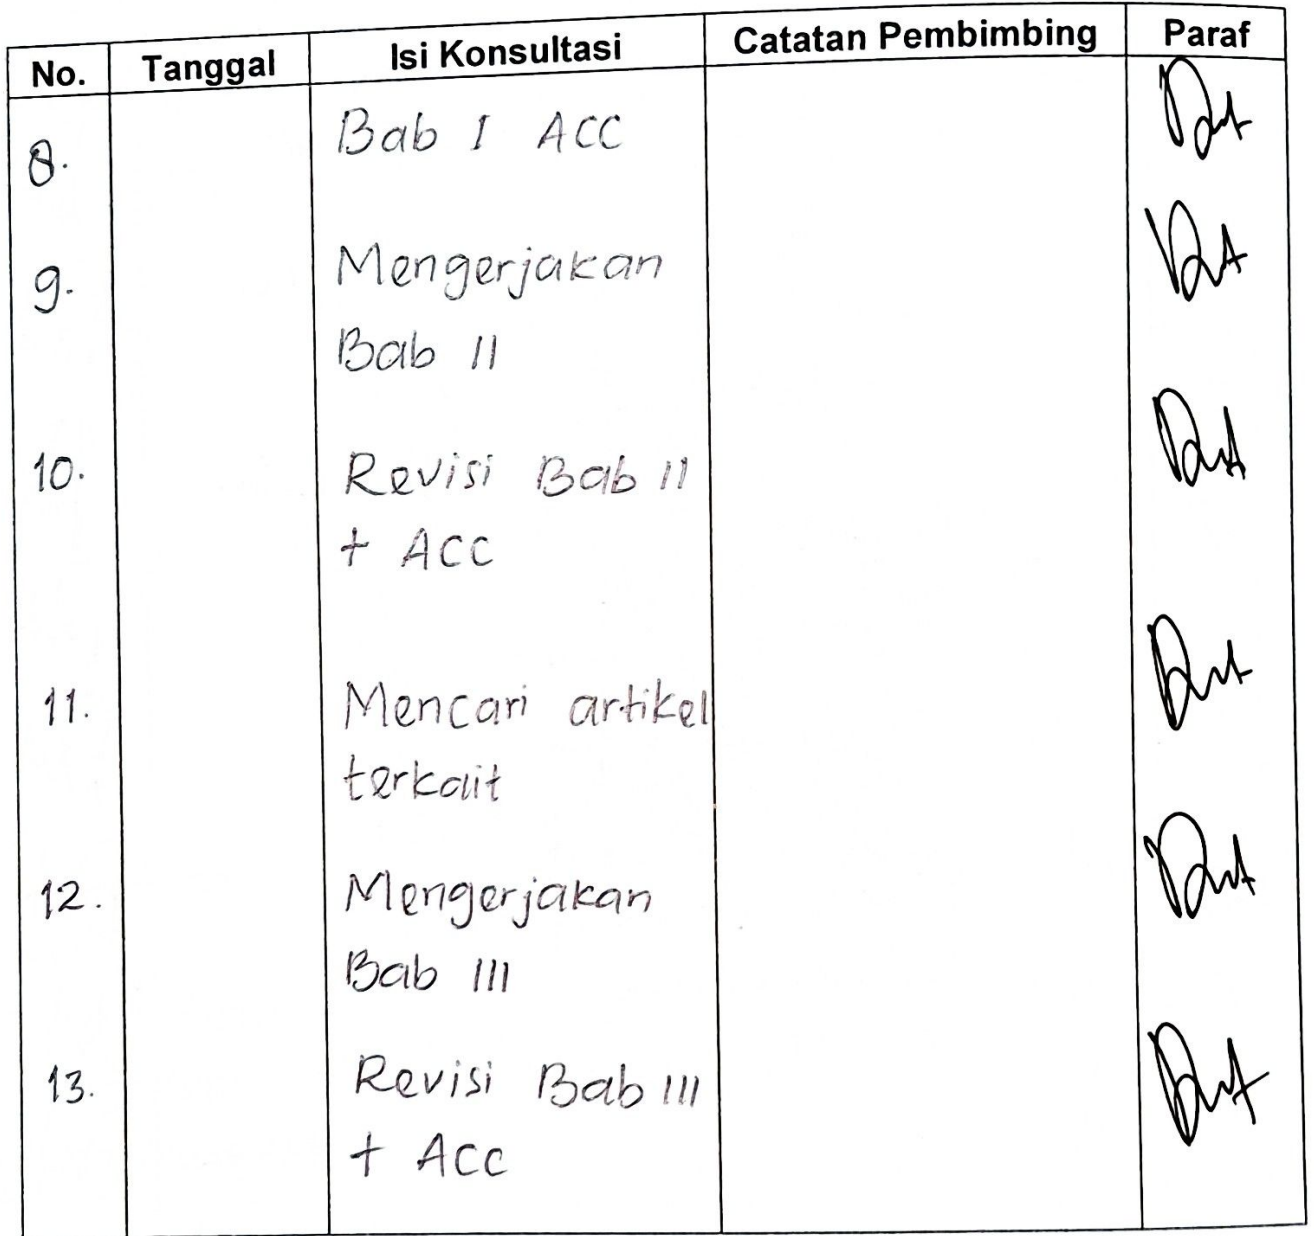 No. Tanggal Isi Konsultasi Catatan Pembimbing Paraf
8. Bab I ACC
9. Mengerjakan
Bab II
10. Revisi Bab II
+ ACC
11. Mencari artikel
terkait
12. Mengerjakan
Bab III
13. Revisi Bab III
+ ACC